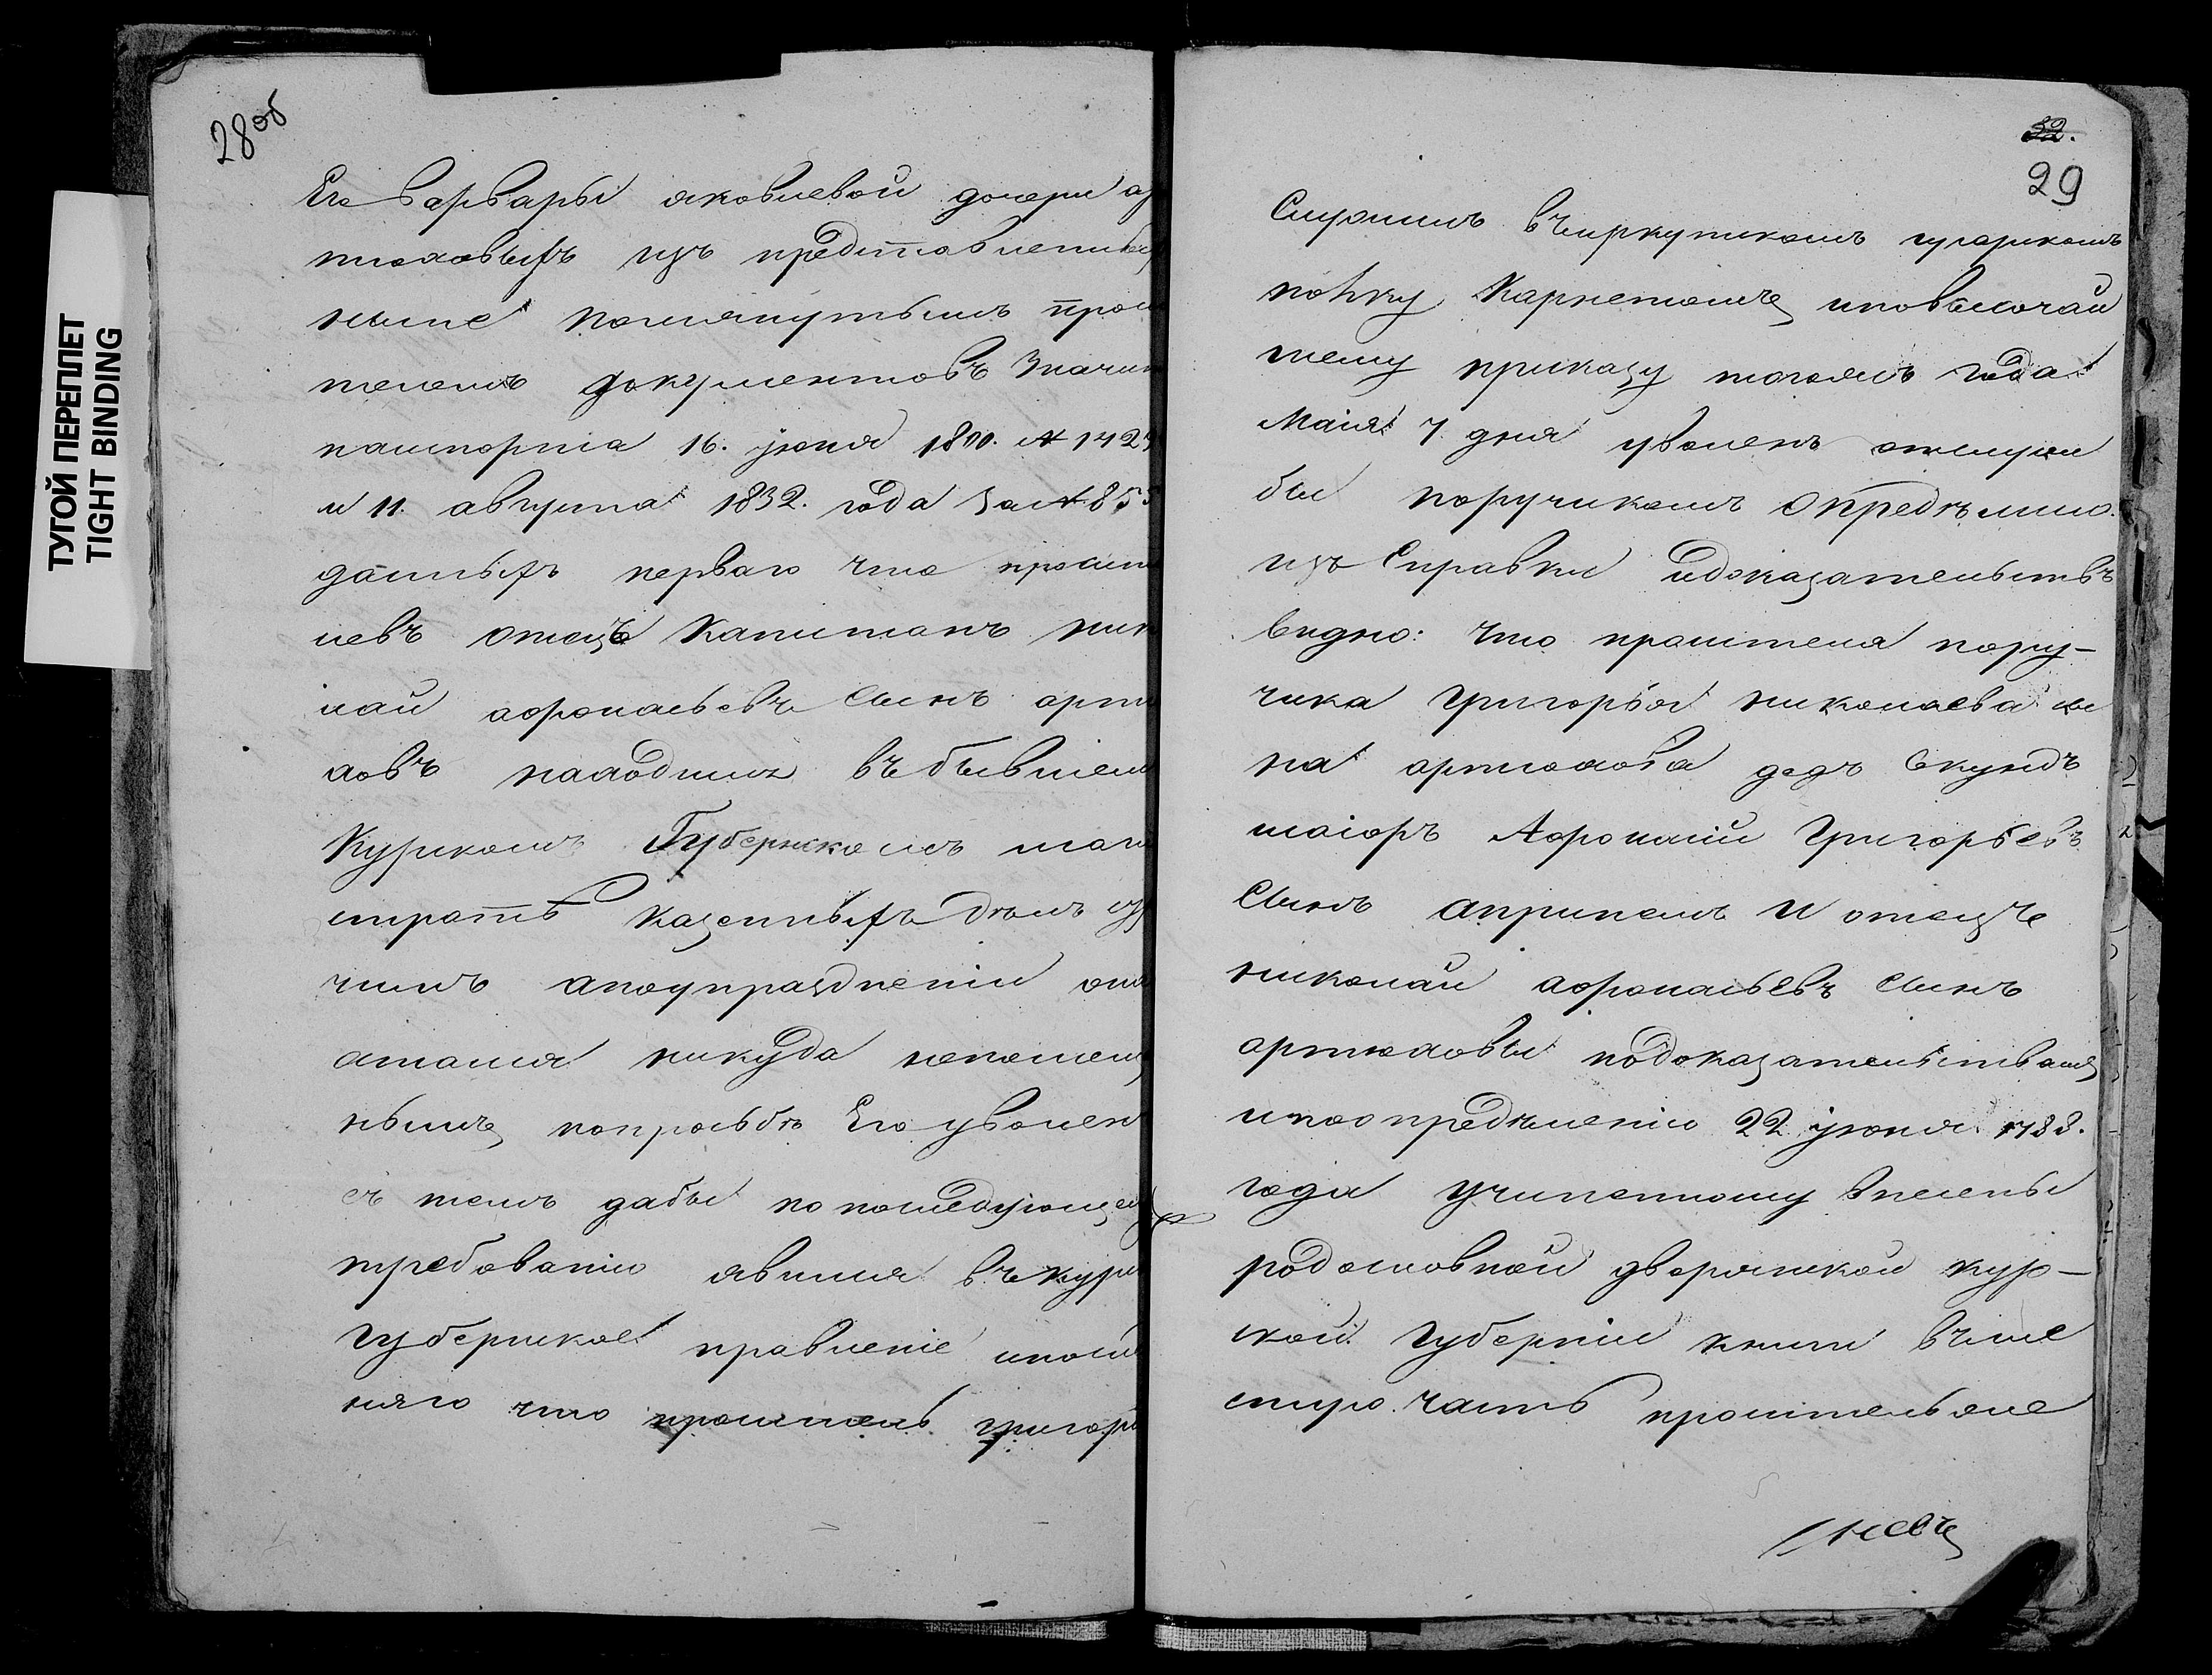 ТУГОЙ ПЕРЕПЛЕТ
TIGHT BINDING
28об
Его варвары яковлевой дочери ар
тюховыхъ изъ представленныхъ
ныне помянутымъ прос
ителемъ документовъ значит
пашпорта 16. июня 1800. № 142
и 11. августа 1832. года за № 855
данныхъ перваго что просите
левъ отецъ Капитанъ ник
лай афонасьевъ сынъ арт
ховъ находился въ бывшемъ
Курскомъ Губернскомъ маги
стратѣ казенныхъ дѣлъ
чимъ апоупраздненiи она
сталъ никуда непомещен
нымъ попросьбѣ Его уволен
съ темъ дабы по последующему
требованiю явился въ курс
губернское правленiе ипосл
няго что проситель григорi
32.
29
Служилъ въ иркутскомъ гусарскомъ
полку Карнетомъ иповысочай
шему приказу тогожъ года
Маiя 7 дня уволенъ отслуж
бы поручикомъ Определили.
изъ Справки идоказательствъ
видно: что просителя пору-
чика Григорья николаева сы
на артюхова дедъ Секундъ
маiоръ Афонасiй Григорьевъ
сынъ априпемъ и отецъ
николай афонасьевъ сынъ
артюховы подоказательствамъ
ипоопределенiю 22 июня 1788.
года учиненному внесены
родословной дворянской кур-
ской губернiи книги въше
стую. часть просительже